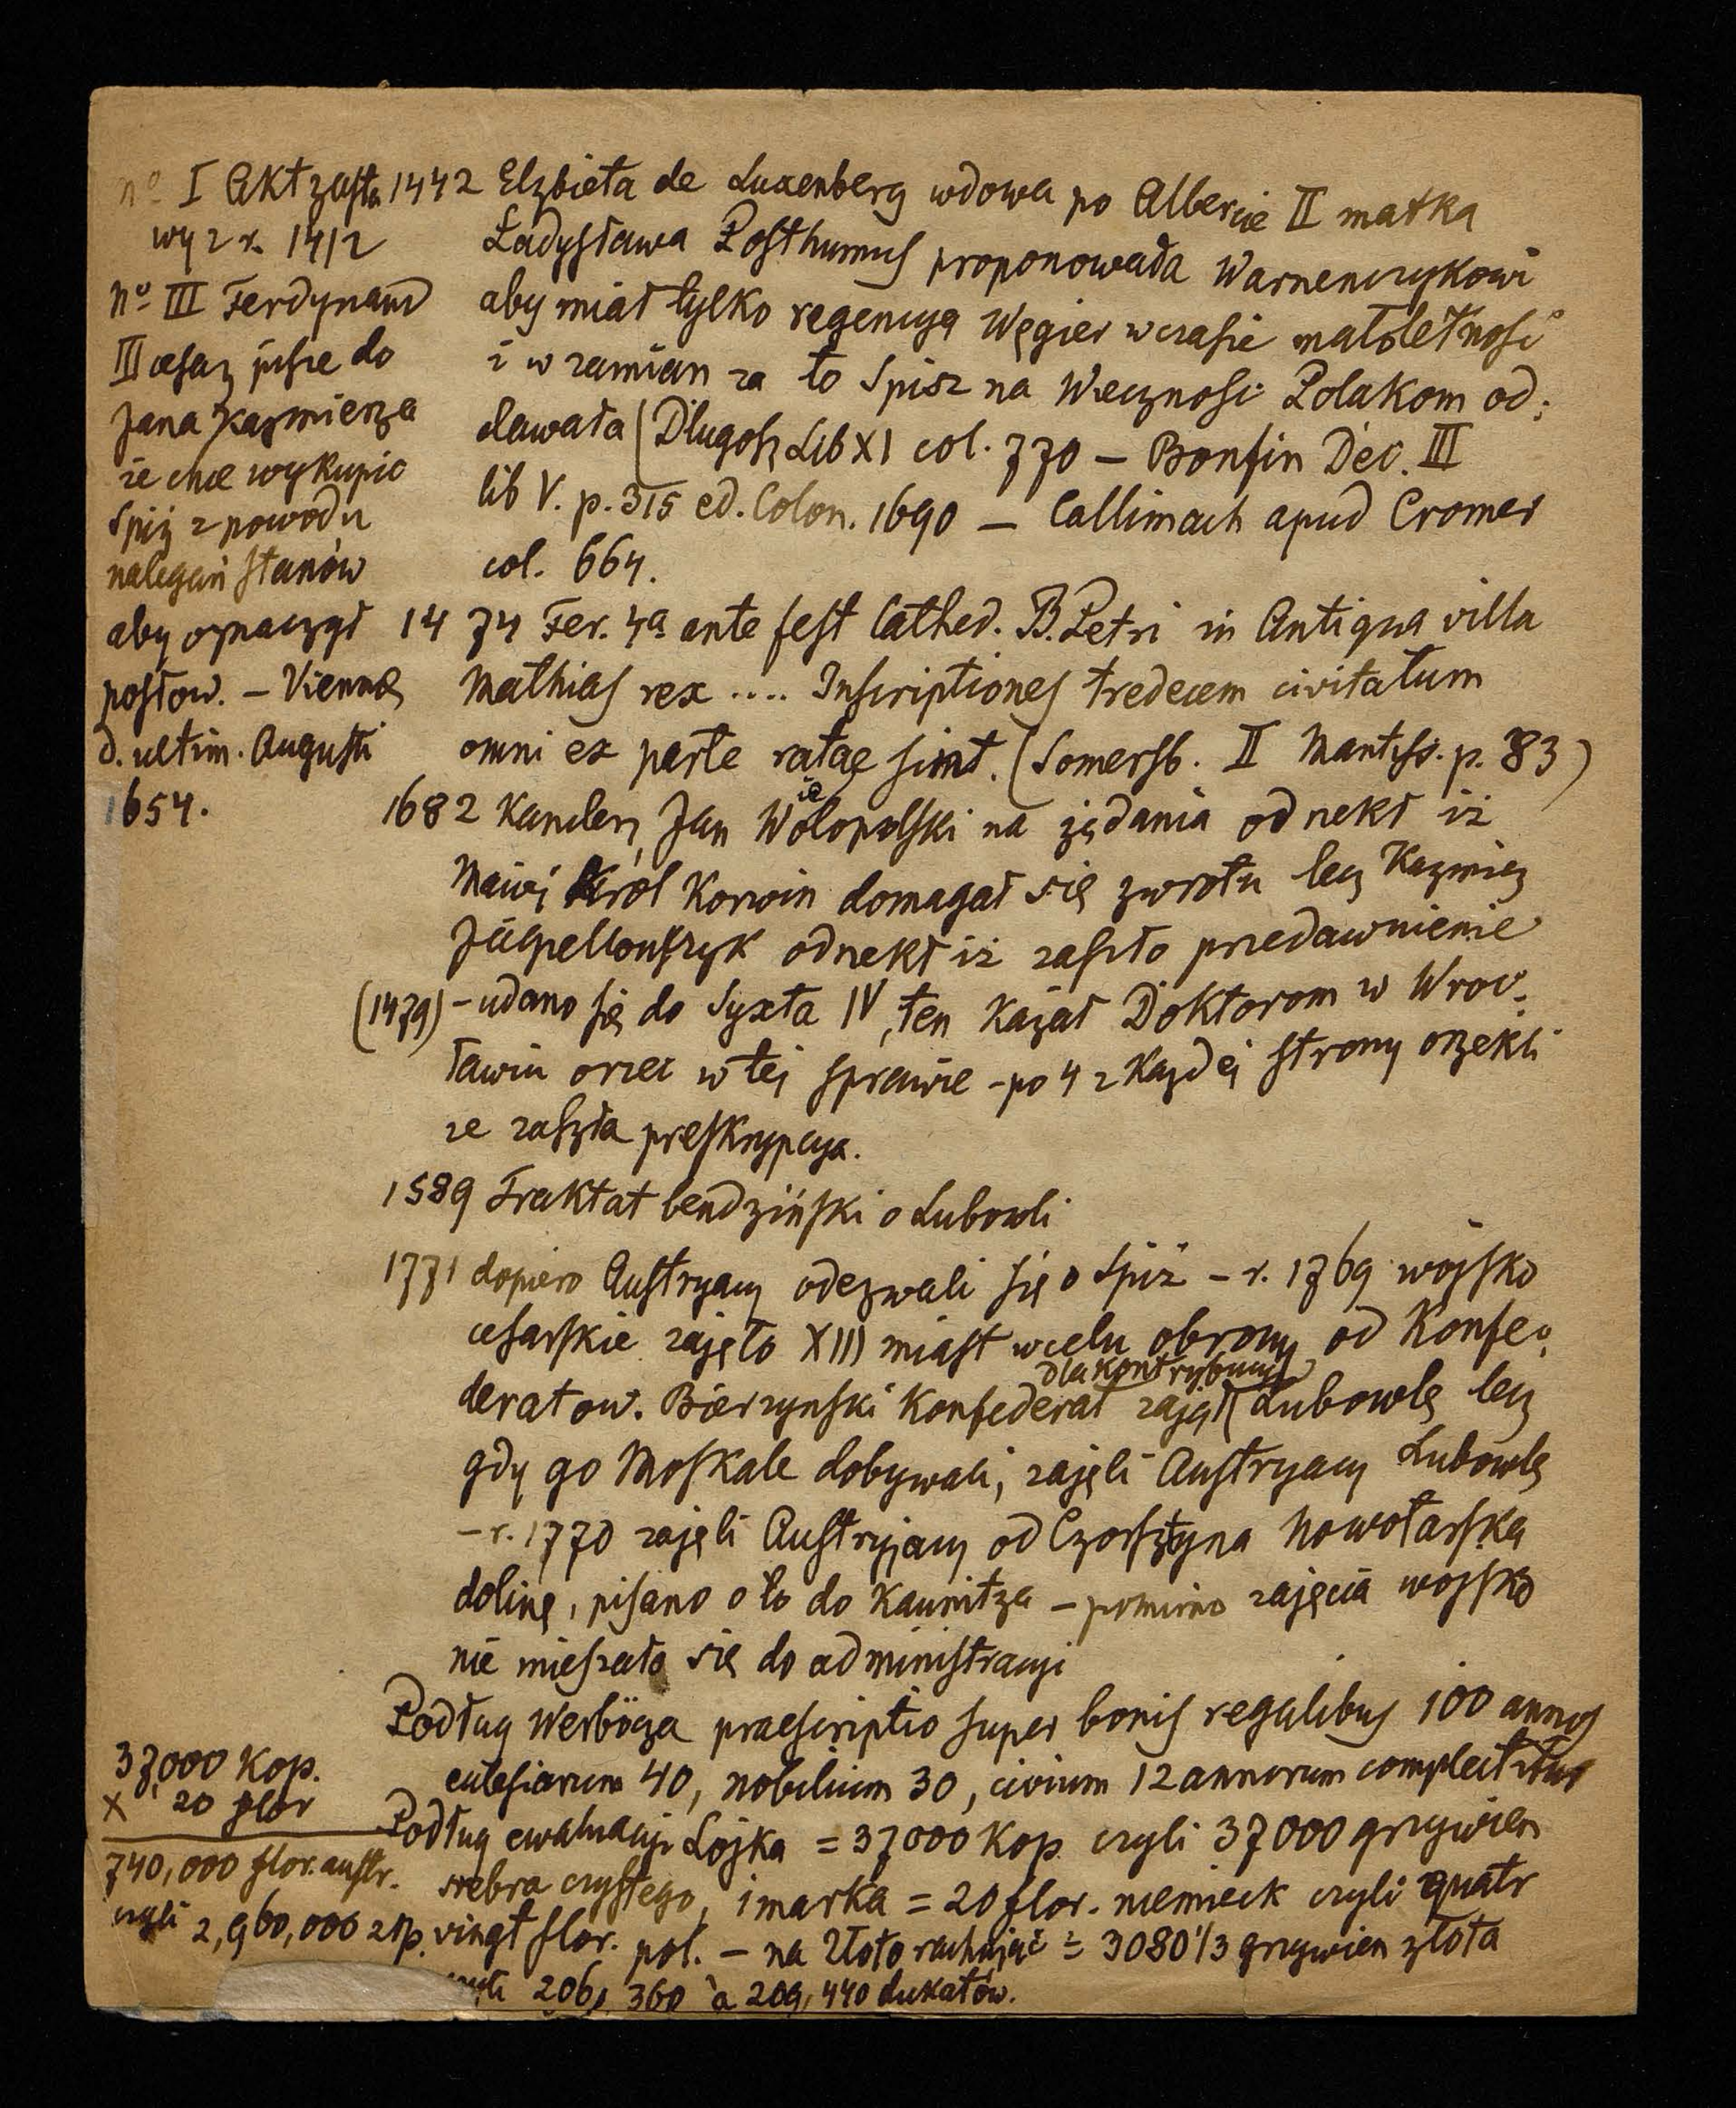 nº I Akt zasta
wy z r. 1412
nº III Ferdynand
III cesarz pisze do
Jana Kazmierza
że chce wykupic
Spiż z powodu
nalegań stanów
aby oznaczył
posłow. – Viennæ
d. ultim. Augusti
1654.
1442 Elzbieta de Luxenberg wdowa po Albercie II matka
Ładysława Posthumus proponowała Warnenczykowi
aby miał tylko regencyą Węgier w czasie małoletnosci
i w zamian za to Spisz na Wiecznosć Polakom od:
dawała (Długosz Lib XI col. 770 – Bonfin Dec. III
lib V. p. 315 ed. Colon. 1690 – Callimach apud Cromer
col. 664.
1474 Fer. 4ª ante fest Cathed. B. Petri in Antiqua villa
Mathias rex .... Inscriptiones tredecem civitatum
omni ex parte ratae sint. (Somersb. II Mantiss. p. 83)
1682 Kanclerz Jan Wielopolski na żądania odrzekł iż
Maciej Król Korwin domagał się zwrotu lecz Kazmierz
Jagiellończyk odrzekł iż zaszło przedawnienie
(1479) – udano się do Syxta IV, ten kazał Doktorom w Wroc:
ławiu orzec w tej sprawie – po 4 z każdej strony orzekli
że zaszła preskrypcya.
1589 Traktat bendziński o Lubowli
1771 dopiero Austryacy odezwali się o Spiż – r. 1769 wojsko
cesarskie zajęło XIII miast w celu obrony od Konfe:
deratow. Bierzynski Konfederat zajął dla kontrybucyi Lubowlę lecz
gdy go Moskale dobywali, zajęli Austryacy Lubowlę
– r. 1770 zajęli Austryjacy od Czorsztyna Nowotarską
dolinę, pisano o to do Kaunitza – pomimo zajęcia wojsko
nie mieszało się do administracyi
Podług Werböcza praescriptio super bonis regalibus 100 annos
eclesiarum 40, nobilium 30, civium 12 annorum complectitur
Podług ewaluacyi Łojka = 37000 Kop czyli 37000 grzywien
srebra czystego, 1 marka = 20 flor. niemieck czyli quatr
vingt flor. pol. – na złoto rachując = 3080 1/3 grzywien złota
czyli 206, 360 à 209, 440 dukatów.
37,000 Kop.
x 20 flor
740,000 flor. austr.
czyli 2,960,000 złp.